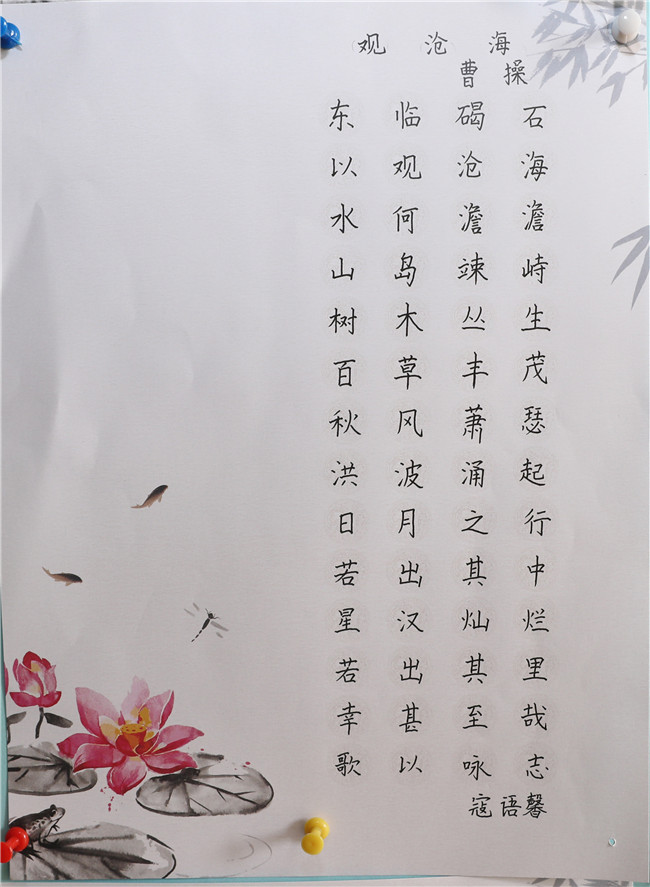 观沧海
曹操
东临碣石
以观沧海
水何澹澹
山岛竦峙
树木丛生
百草丰茂
秋风萧瑟
洪波涌起
日月之行
若出其中
星汉灿烂
若出其里
幸甚至哉
歌以咏志
寇语馨